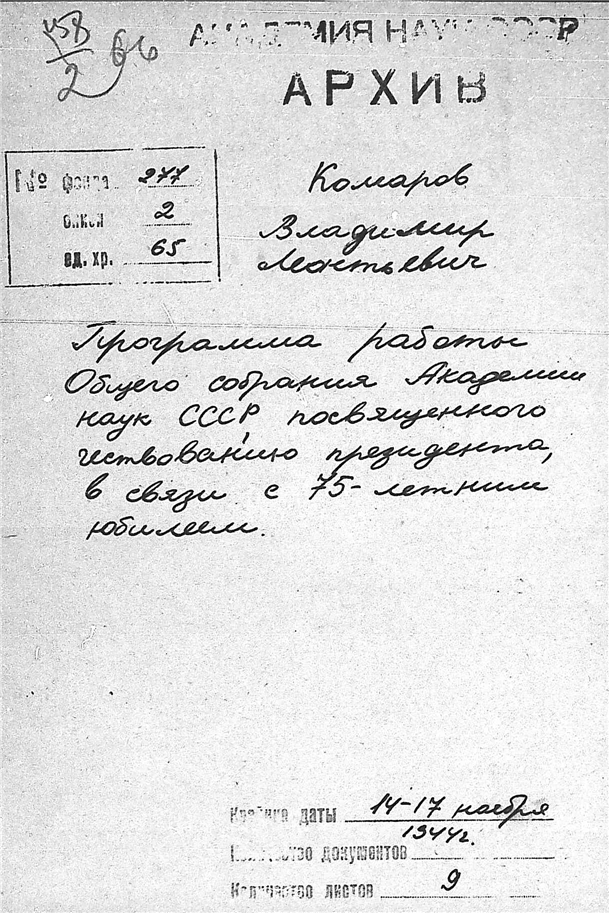 458
2
66
АКАДЕМИЯ НАУК СССР
АРХИВ
№ фонда 277
описи 2
ед. хр. 65
Комаров
Владимир
Леонтьевич
Программа работы
Общего собрания Академии
наук СССР, посвященного
чествованию президента,
в связи с 75-летним
юбилеем.
Крайние даты 14-17 ноября
1944г.
Количество документов
Количество листов 9